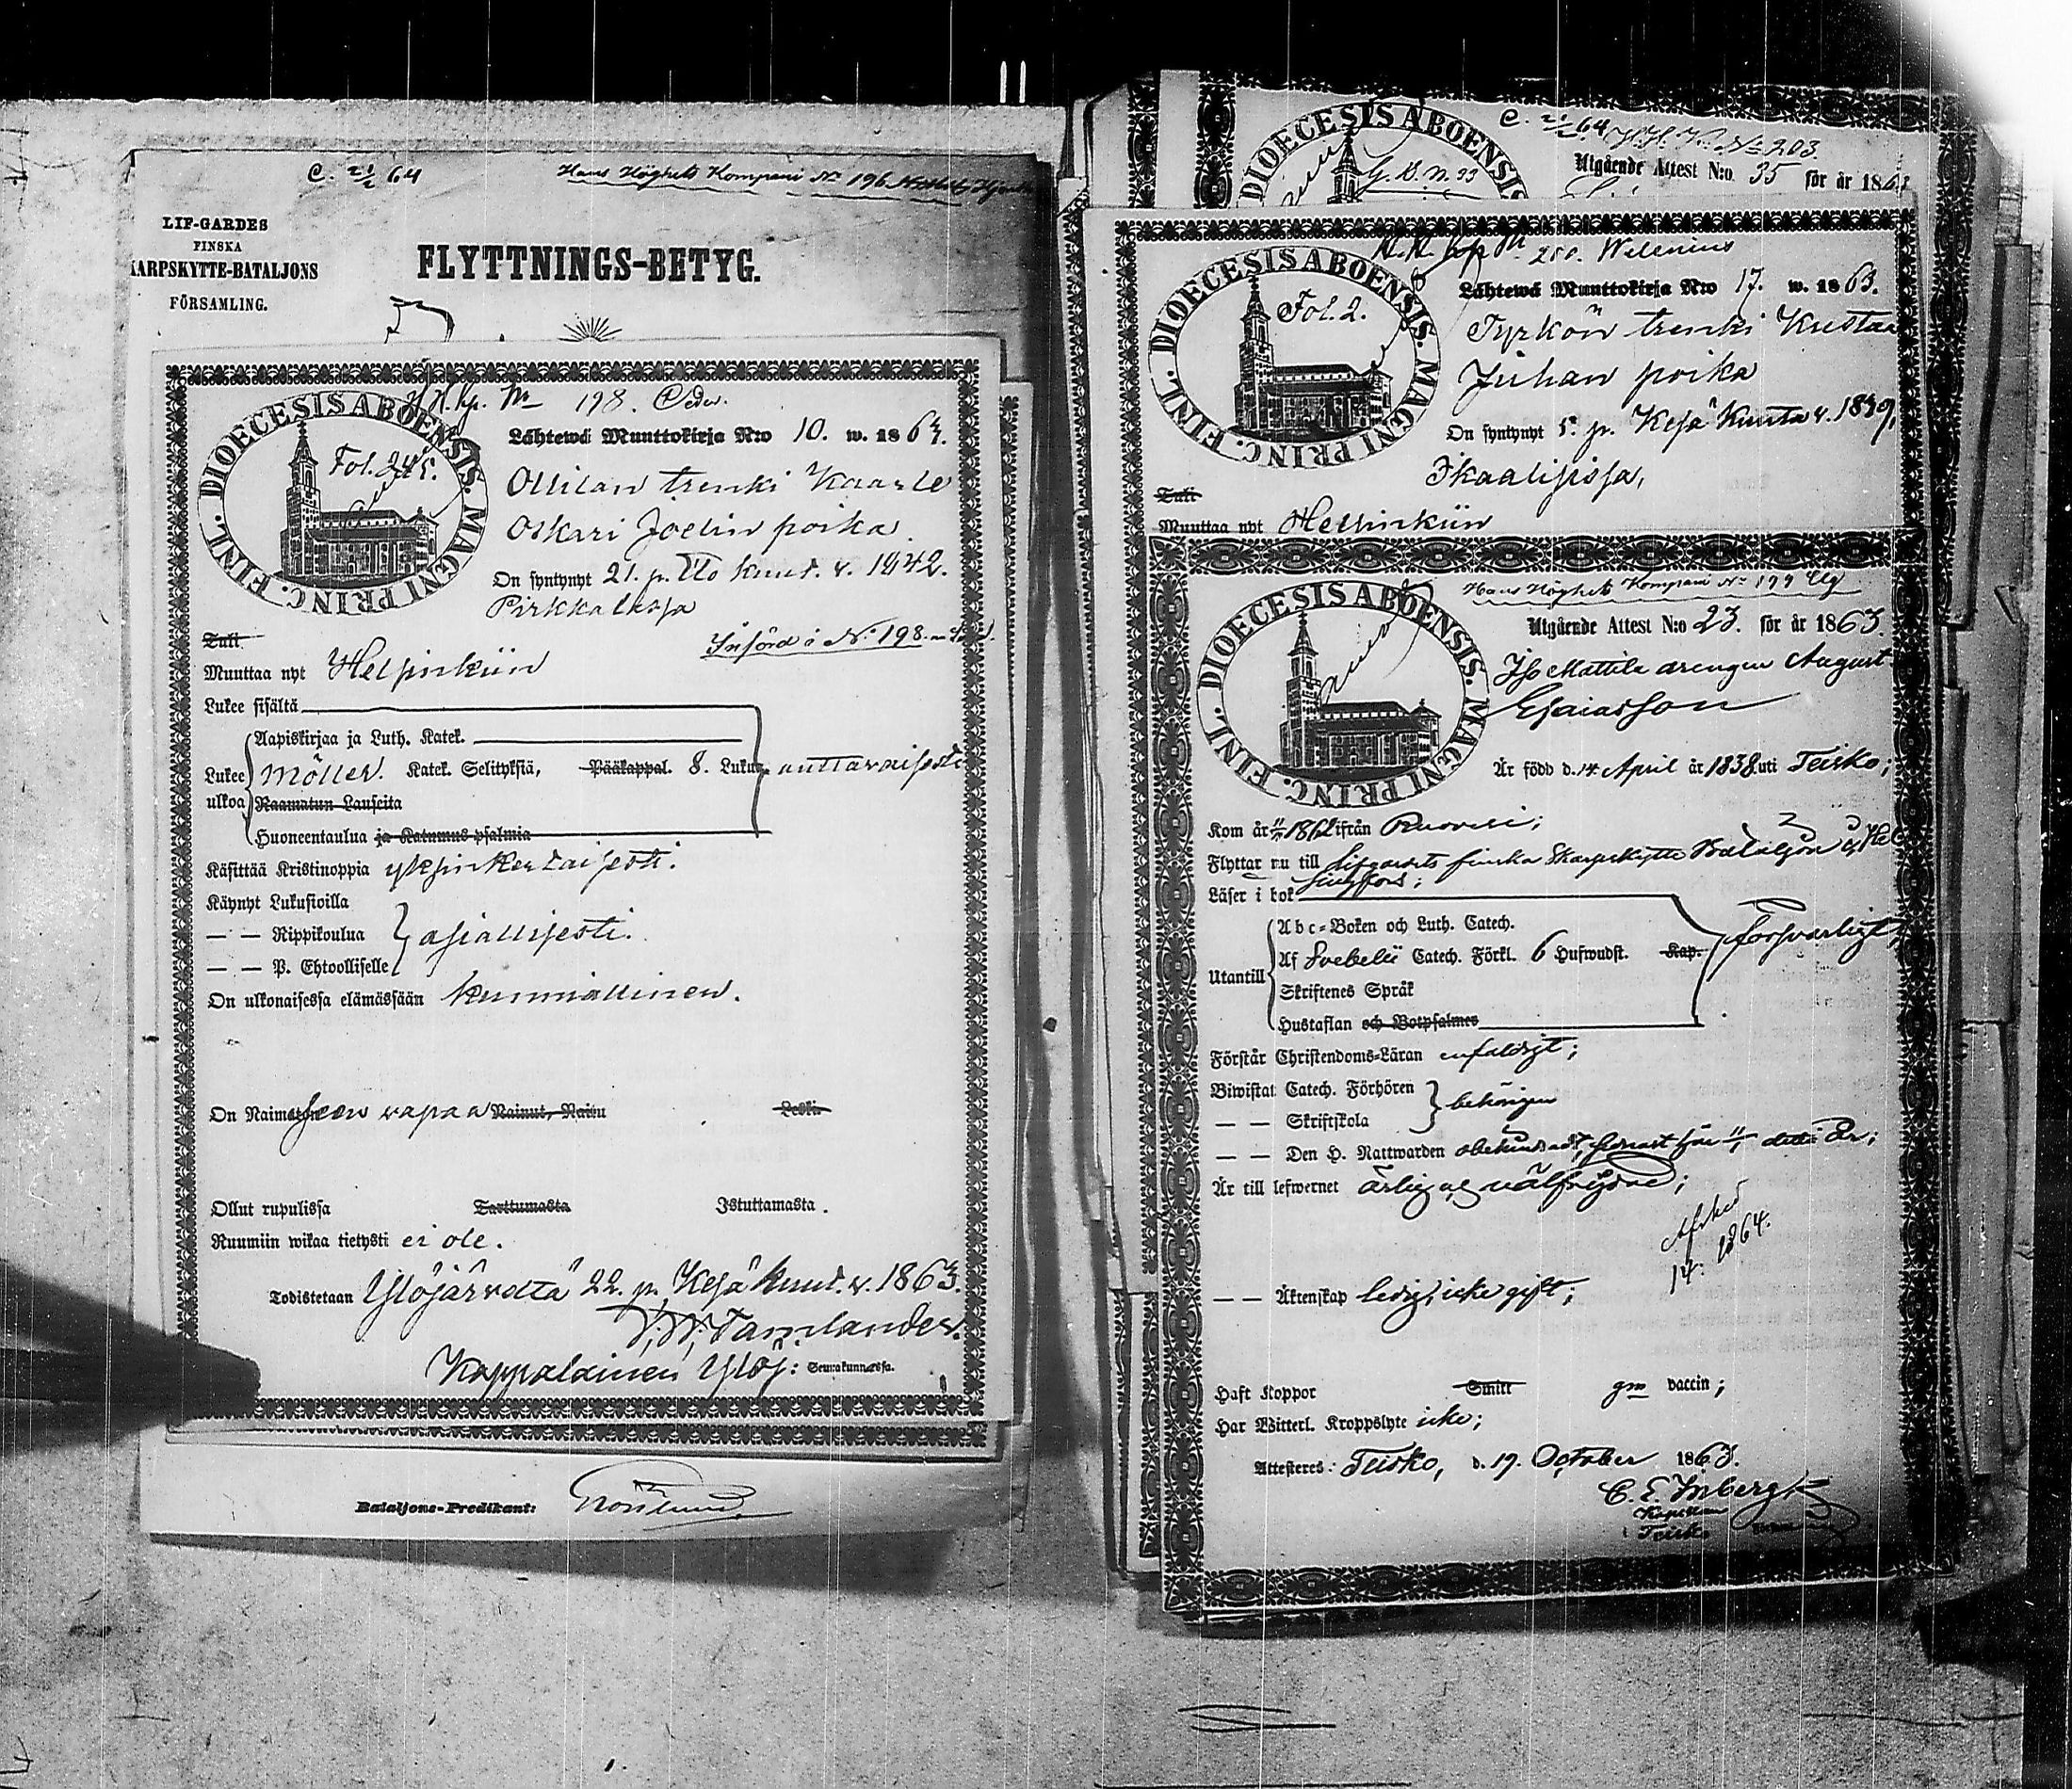 C. 21/2 64
Hans Höghets Kompani No 196
LIF-GARDES
FINSKA
KARPSKYTTE-BATALJONS
FÖRSAMLING.
FLYTTNINGS-BETYG.
H. H. Kp. No 198. Ceder.
DIOECESIS ABOENSIS. MAGNI PRINC. FINL.
Fol. 245.
Lähtewä Muuttokirja N:o 10. w. 1863.
Ollilan trenki Kaarle
Oskari Joelin poika.
On syntynyt 21. p. Elo kuut. v. 1842.
Pirkkalassa
Tuli
Införd å No 198.
Muuttaa nyt Helsinkiin
Lukee sisältä
Aapiskirjaa ja Luth. Katek.
Lukee Möller. Katek. Selityksiä, Pääkappal. 8. Lukua auttavaisesti
ulkoa Raamatun Lauseita
Huoneentaulua ja Katumus-psalmia
Käsittää Kristinoppia yksinkertaisesti.
Käynyt Lukusioilla
— — Rippikoulua asiallisesti.
— — P. Ehtoolliselle
On ulkonaisessa elämässään kunniallinen.
On Naimiseen vapaa Nainut, Naitu Leski
Ollut rupulissa Tarttumasta Istuttamasta.
Ruumiin wikaa tietysti ei ole.
Todistetaan Ylöjärveltä 22. p. Kesäkuut. v. 1863.
Tamlander.
Kappalainen Ylöj: Seurakunnassa.
Bataljons-Predikant:
C. 21/2 64
H. H. K. No 203.
DIOECESIS ABOENSIS
G. B. N. 93
Utgående Attest N:o 35 för år 1863
H. H. Kp No. 200. Welenius
DIOECESIS ABOENSIS. MAGNI PRINC. FINL.
Fol. 2.
Lähtewä Muuttokirja N:o 17. w. 1863.
Tyrkön trenki Kustaa
Juhan poika
On syntynyt 5. p. Kesä Kuuta v. 1839,
Ikaalisissa,
Tuli
Muuttaa nyt Helsinkiin
Hans Höghets Kompani No 199 Elg
DIOECESIS ABOENSIS. MAGNI PRINC. FINL.
Utgående Attest N:o 23. för år 1863.
Iso Mattila drengen August
Esaiasson
Är född d. 14 April år 1838 uti Teisko;
Kom år 1862 ifrån Ruovesi;
Flyttar nu till Lifgardets finska Skarpskytte Bataljon i Hel
singfors;
Läser i bok
Abc-Boken och Luth. Catech.
Utantill Af Svebelii Catech. Förkl. 6 Hufwudst. Kap. försvarligt;
Skriftenes Språk
Hustaflan och Botpsalmer
Förstår Christendoms-Läran enfaldigt;
Biwistat Catech. Förhören
— — Skriftskola behörigen
— — Den H. Nattwarden obehindradt, senast den detta år;
Är till lefwernet ärlig och välfrejdad;
Afsked
14. 1864.
— — Äktenskap ledig, icke gift;
Haft Koppor Smitt gm vaccin;
Har Witterl. Kroppslyte icke;
Attesteras: Teisko, d. 19. October 1863.
C. E. Inberg
Kapellan
i Teisko